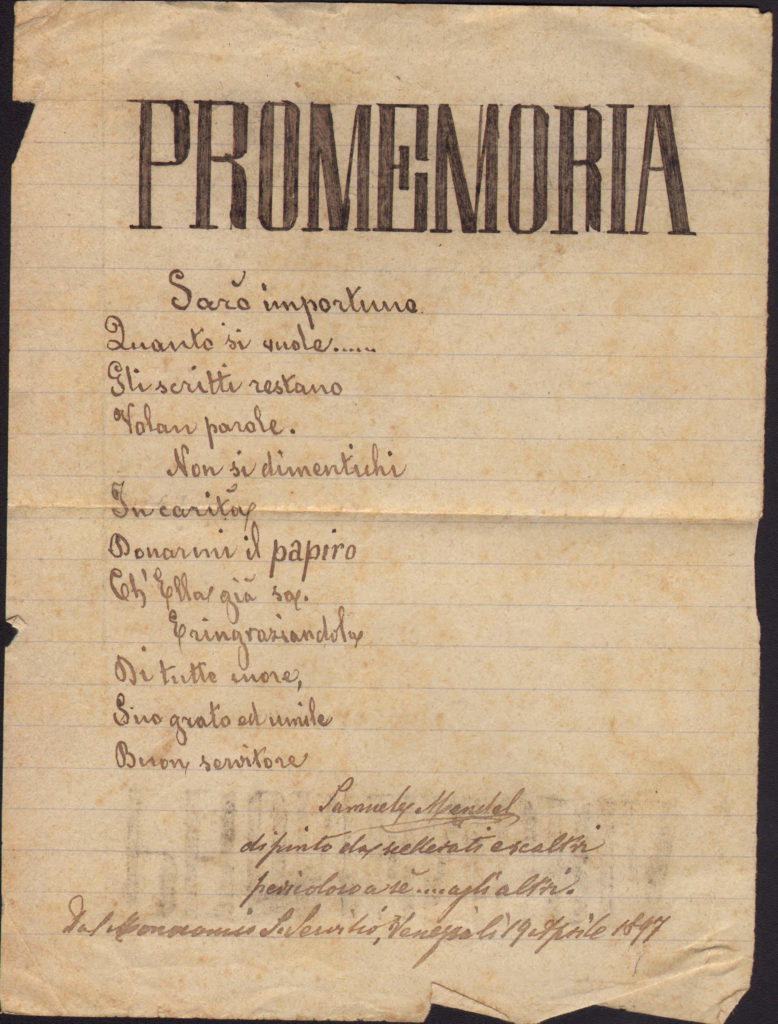 PROMEMORIA
Sarò importuno
Quanto si vuole.....
Gli scritti restano
Volan parole.
Non si dimentichi
In carità
Donarmi il papiro
Ch'Ella già sa.
E ringraziandola
Di tutto cuore,
Suo grato ed umile
Buon servitore
Samuele Mendel
dipinto da scellerati e scaltri
pericoloso a sè....agli altri.
Dal S. Servilio, Venezia lì 19 Aprile 1897